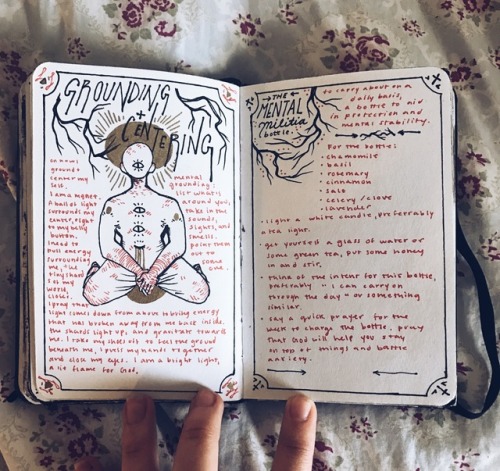 GROUNDING
+
CENTERING
ground +
center my
self.
I am a magnet.
A ball of light
surrounds my
center, right
to my belly
button.
I need to
pull energy
surrounding
me,
my
world,
closer.
I pray that
light comes down from above to bring energy
that has broken away from me back inside.
the shards light up, and gravitate towards
me. I take my shoes off to feel the ground
beneath me, I pull my hands together
and close my eyes. I am a bright light,
a lie flame for God.
mental
grounding:
list what's
around you,
take in the
sounds,
sights, and
smells.
point them
out to
some
one.
THE
MENTAL
militia
bottle.
to carry about on a
daily basis,
a bottle to aid
in protection and
mental stability.
For the bottle:
• chamomile
• basil
• rosemary
• cinnamon
• salt
• celery / clove
• lavender
• light a white candle, preferrably
a tea light.
• get yourself a glass of water or
some green tea, put some honey
in and stir.
• think of the intent for this bottle,
preferably "I can carry on
through the day" or something
similar.
• say a quick prayer for the
work to charge the bottle. pray
that God will help you stay
on top of things and battle
anxiety.